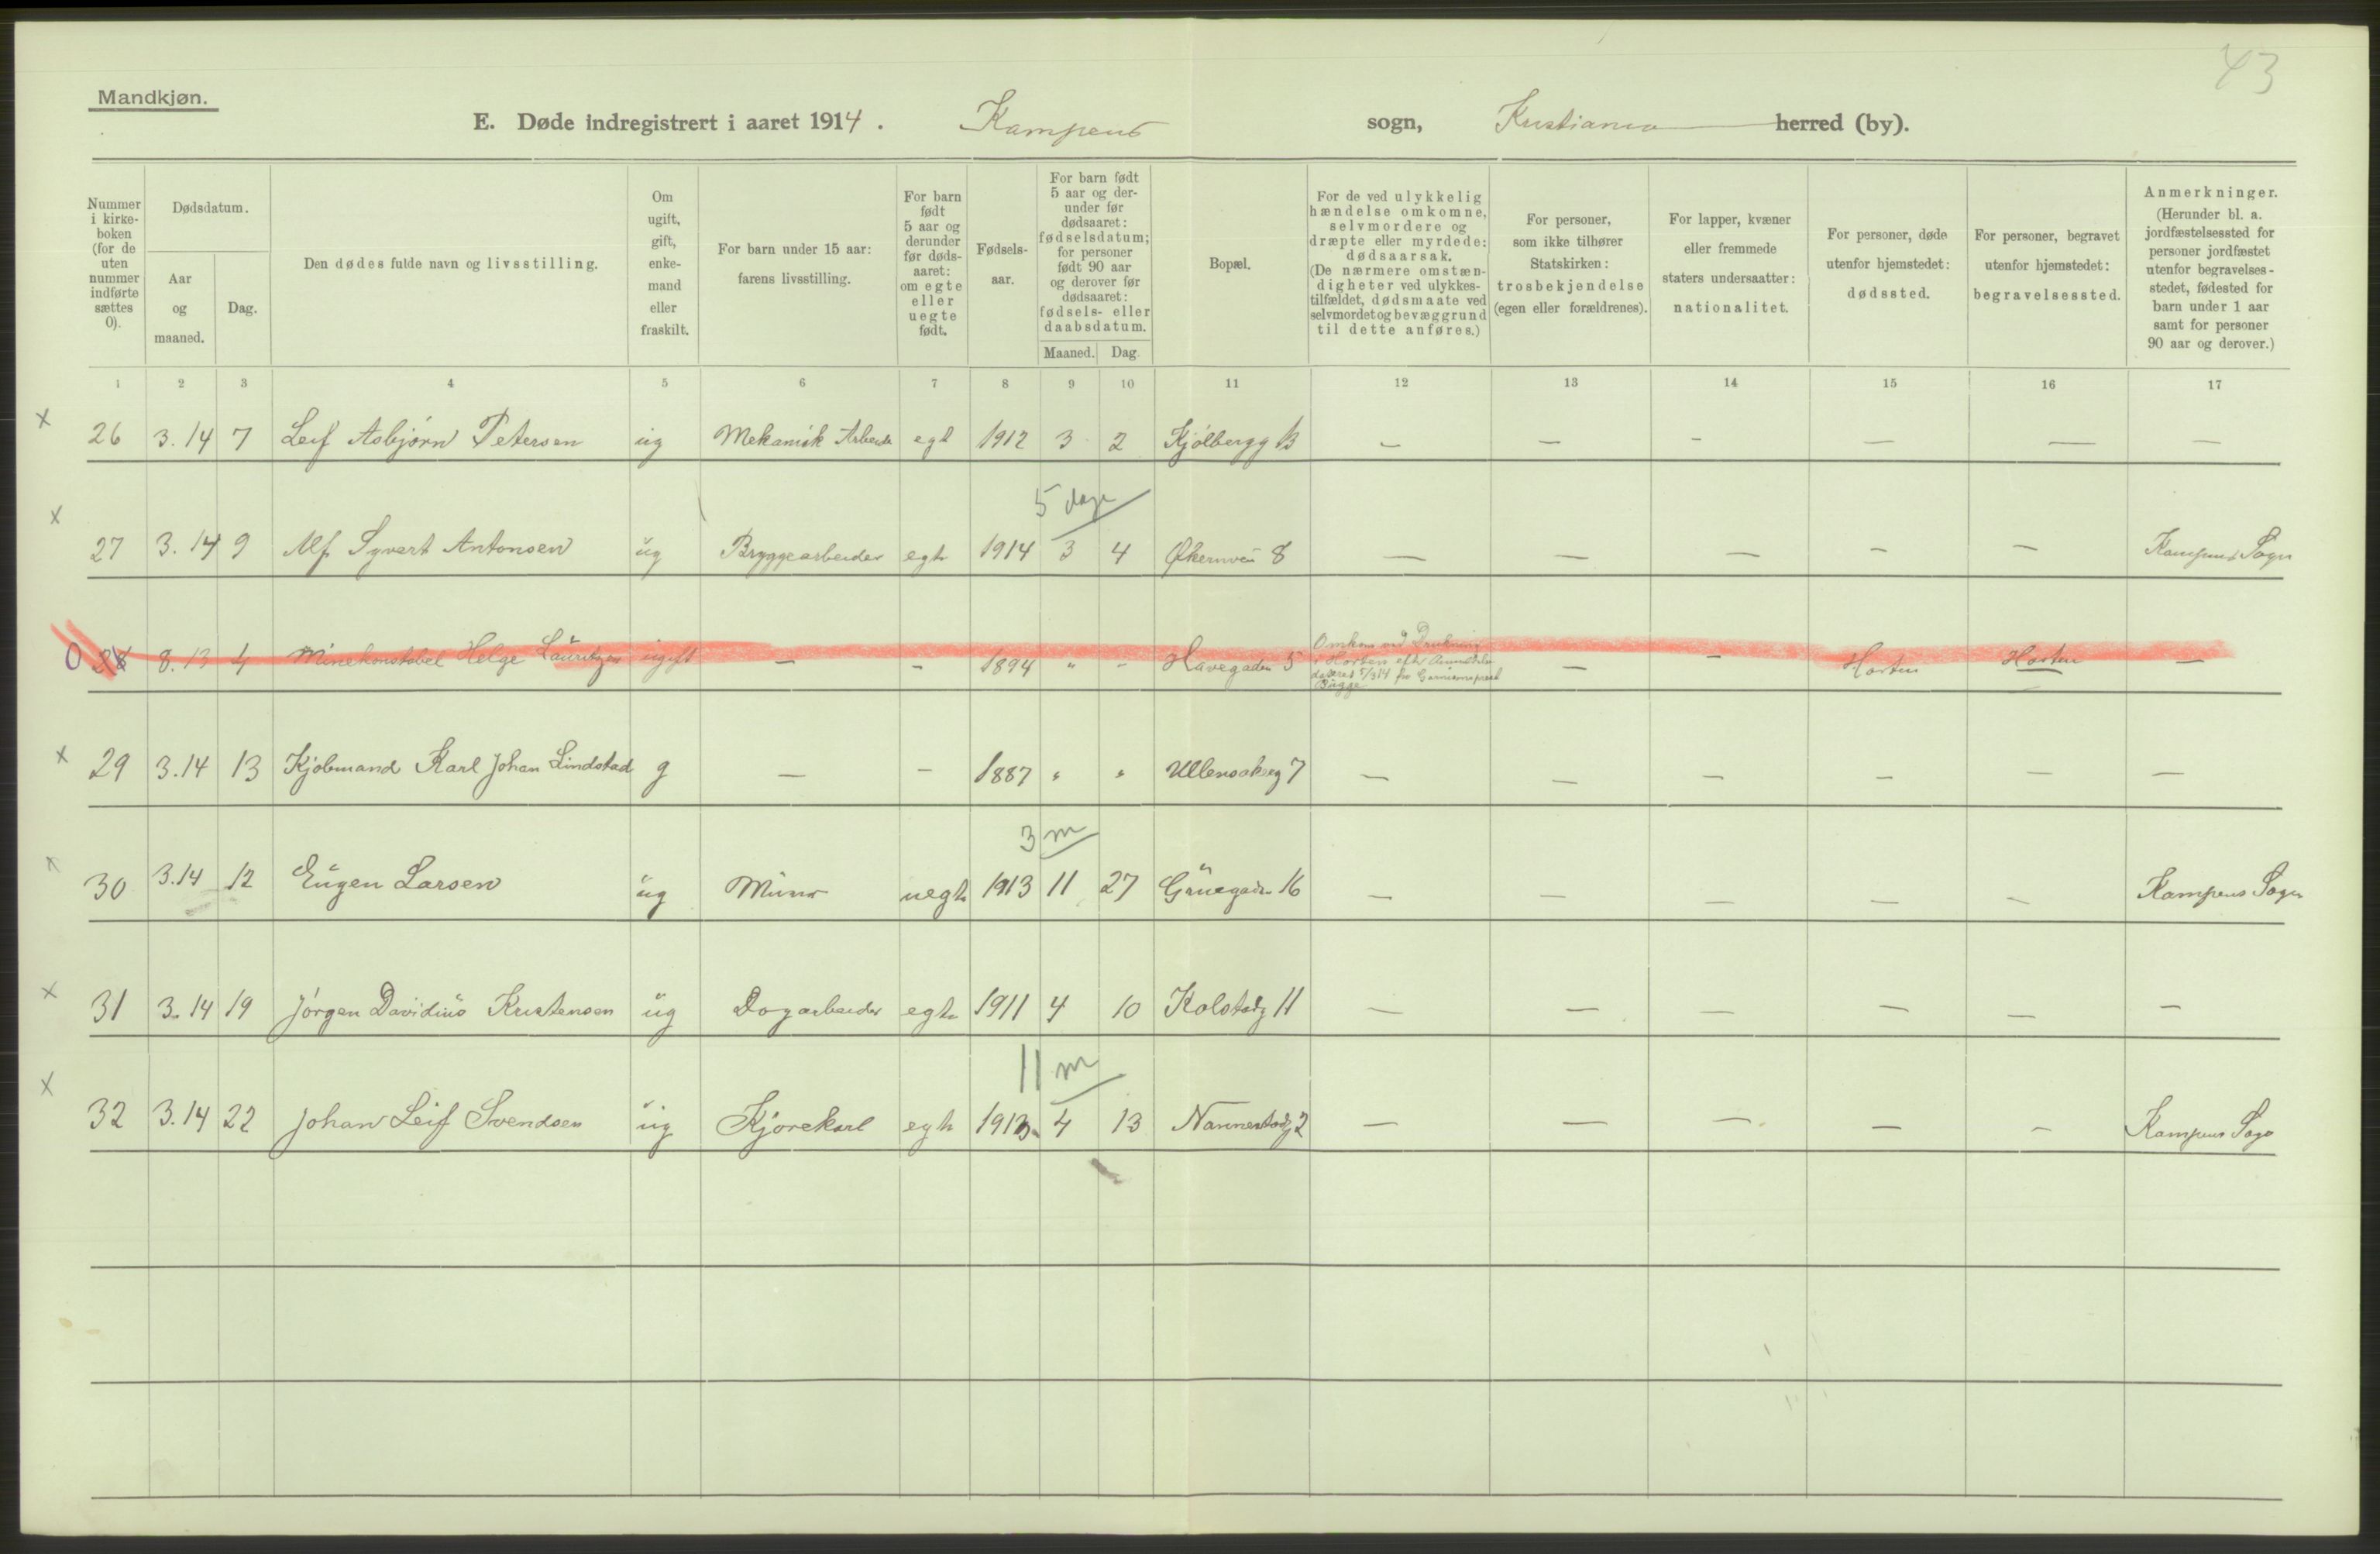 43
Mandkjøn.
E. Døde indregistrert i aaret 1914. Kampens sogn, Kristiania herred (by).
Nummer i kirke- boken (for de uten nummer indførte sættes 0).
Dødsdatum.
Aar og maaned.
Dag.
Den dødes fulde navn og livsstilling.
Om ugift, gift, enke- mand eller fraskilt.
For barn under 15 aar: farens livsstilling.
For barn født 5 aar og derunder før døds- aaret: om egte eller uegte født.
Fødsels- aar.
For barn født 5 aar og der- under før dødsaaret: fødselsdatum; for personer født 90 aar og derover før dødsaaret: fødsels- eller daabsdatum.
Maaned. Dag.
Bopæl.
For de ved ulykkelig hændelse omkomne, selvmordere og dræpte eller myrdede: dødsaarsak. (De nærmere omstæn- digheter ved ulykkes- tilfældet, dødsmaate ved selvmordet og bevæggrund til dette anføres.)
For personer, som ikke tilhører Statskirken: trosbekjendelse (egen eller forældrenes).
For lapper, kvæner eller fremmede staters undersaatter: nationalitet.
For personer, døde utenfor hjemstedet: dødssted.
For personer, begravet utenfor hjemstedet: begravelsessted.
Anmerkninger. (Herunder bl. a. jordfæstelsessted for personer jordfæstet utenfor begravelses- stedet, fødested for barn under 1 aar samt for personer 90 aar og derover.)
1 2 3 4 5 6 7 8 9 10 11 12 13 14 15 16 17
x 26 3.14 7 Leif Asbjørn Petersen ug Mekanisk Arbeider egt 1912 3 2 Kjølbergg 13 — — — — — —
5 dage
x 27 3.14 9 Alf Syvert Antonsen ug Bryggearbeider egte 1914 3 4 Økernvei 8 — — — — — Kampens Sogn
0 28 8.13 4 Minekonstabel Helge Lauritzen ugift — — 1894 " - Havegaden 5 Omkom ved Drukning i Horten efter Anmeldelse dateret 5/3 14 fra Garnisonsprest Bugge — — Horten Horten —
x 29 3.14 13 Kjøbmand Karl Johan Lindstad g — — 1887 " " Ullensakerg 7 — — — — — —
3 m
x 30 3.14 12 Eugen Larsen ug Murer uegte 1913 11 27 Grüegaden 16 — — — — — Kampens Sogn
x 31 3.14 19 Jørgen Davidius Kristensen ug Dagarbeider egte 1911 4 10 Kolstadg 11 — — — — — —
11 m
x 32 3.14 22 Johan Leif Svendsen ug Kjørekarl egte 1913 4 13 Nannestadg 2 — — — — — Kampens Sogn